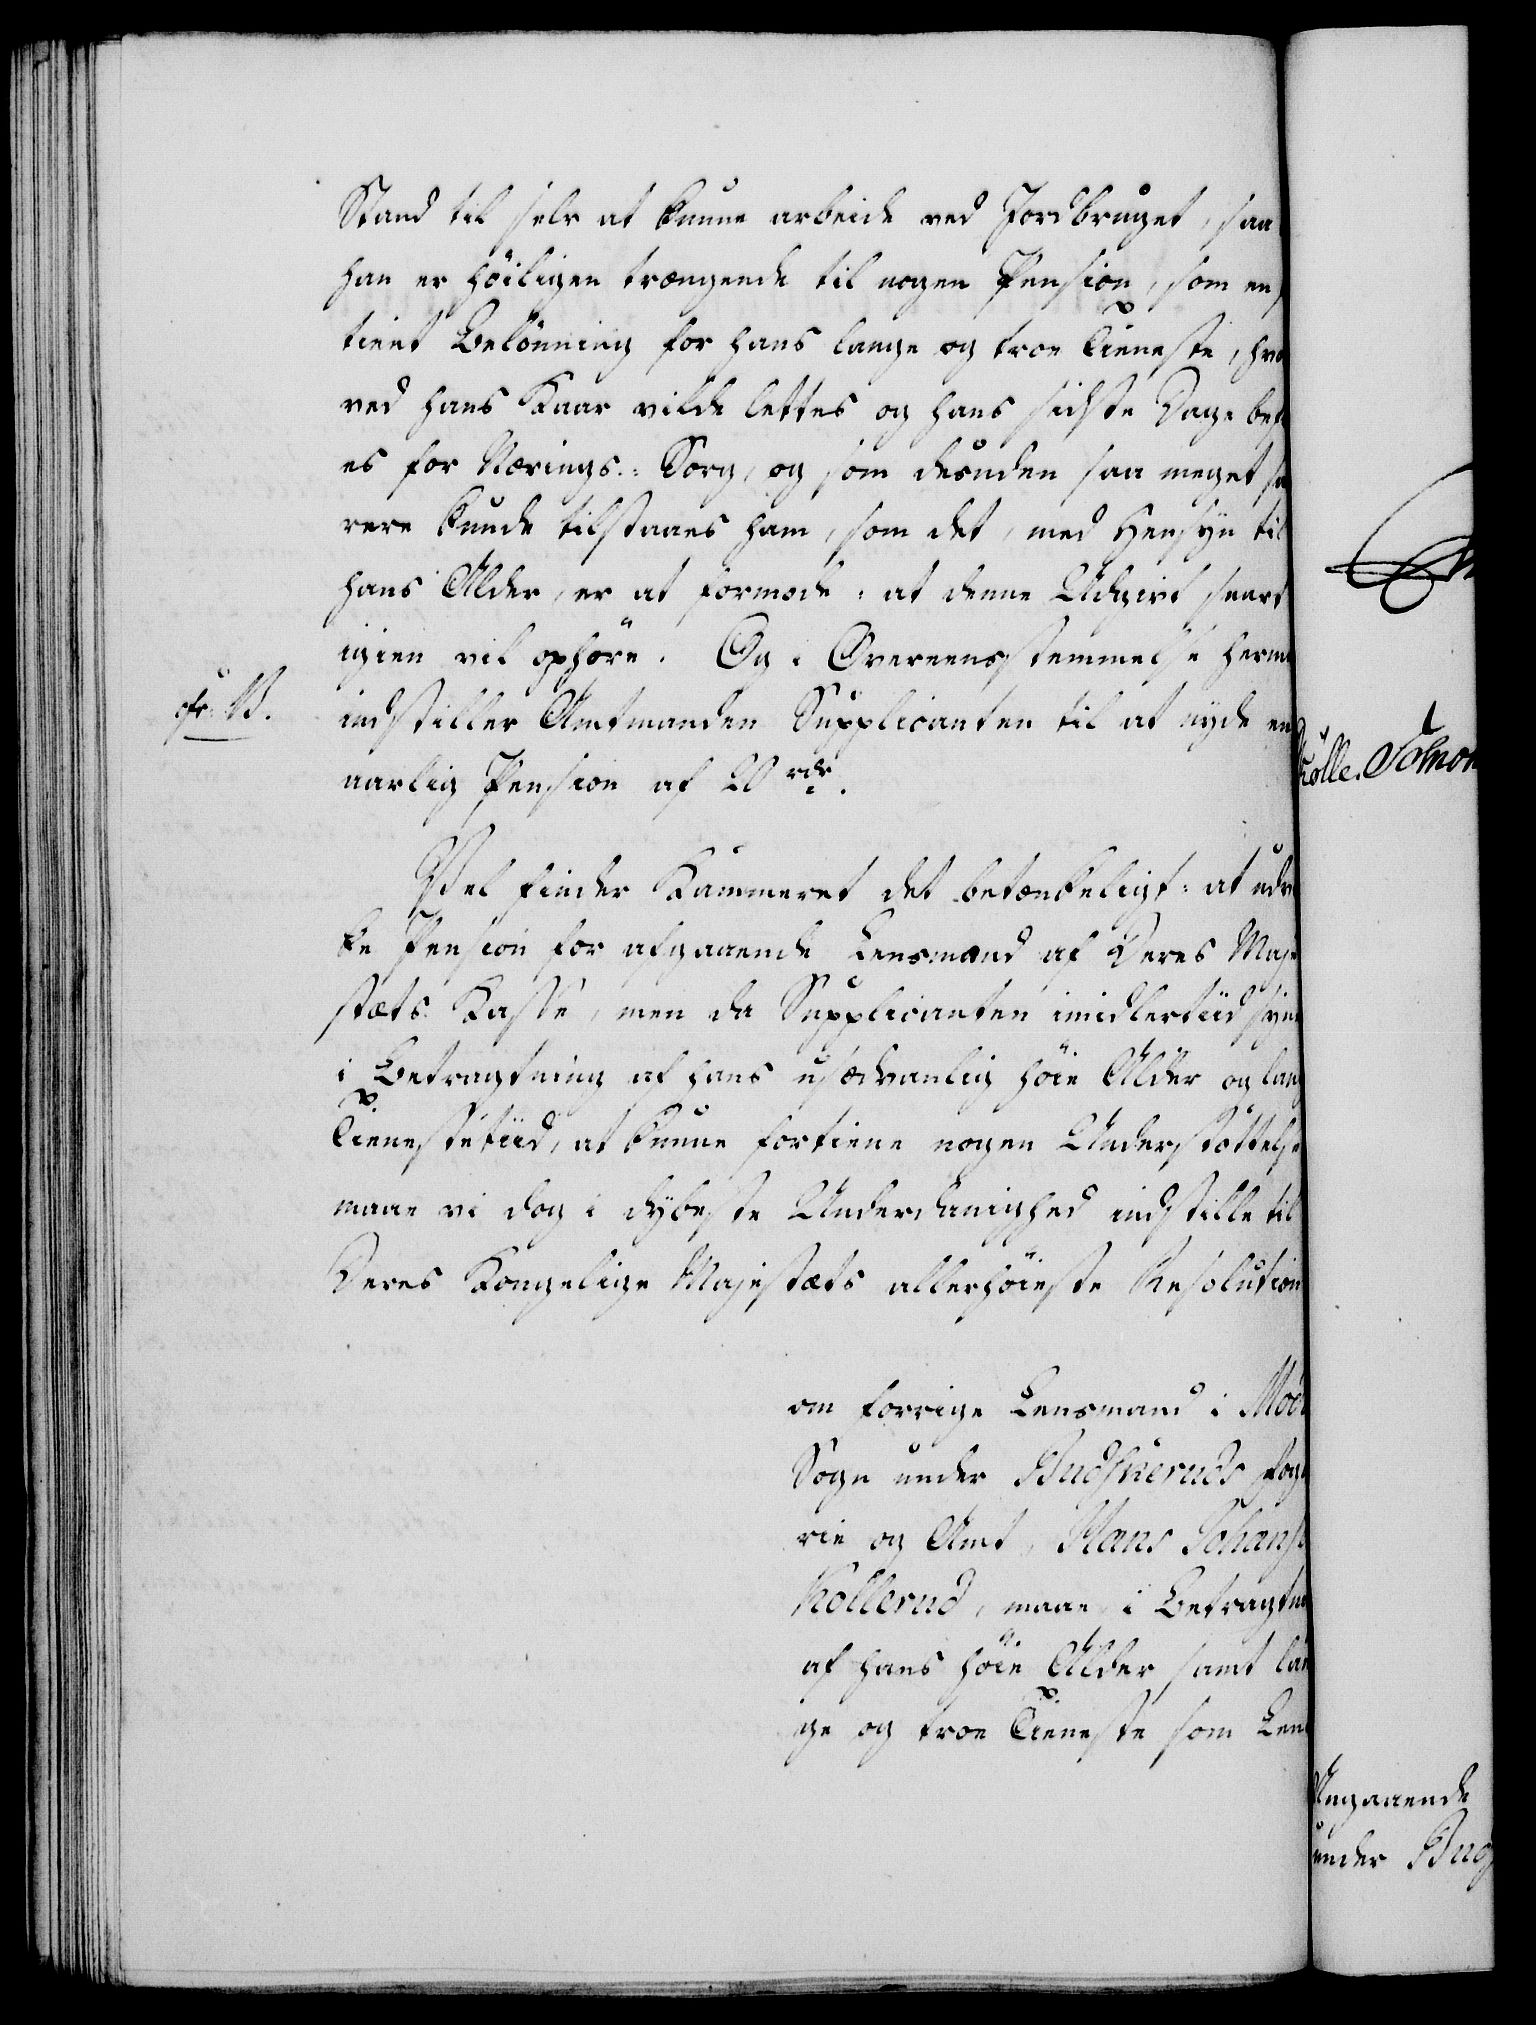 Stand til selv at kunne arbeide ved Jordbruget, saa
han er höiligen trængende til nogen Pension, som en
tient Belönning for hans lange og troe Tieneste, hvo
ved hans Kaar vilde lettes og hans sidste Dage be
es for Nærings-Sorg, og som desuden saa meget
rere kunde tilstaaes ham, som det, med Hensyn til
hans Alder, er at formode: at denne Udgivt snart
igien vil ophöre. Og i Overeensstemmelse herm
cfr. B.
indstiller Amtmanden Supplicanten til at nyde en
aarlig Pension af 20 rdr.
Vel finder Kammeret det betænkeligt: at udv
ke Pension for afgaaende Lensmænd af Deres Maje
stæts Kasse, men da Supplicanten imidlertiid syne
i Betragtning af hans usædvanlig höie Alder og lang
Tienestetiid, at kunne fortiene nogen Understöttelse
maae vi dog i dybeste Underdanighed indstille til
Deres Kongelige Majestæts allerhöieste Resolution
om forrige Lensmand i Mod
Sogn under Budskeruds Fog
rie og Amt, Hans Johans
Kollerud, maae, i Betragtn
af hans höie Alder samt lan
ge og troe Tieneste som Len
Angaaende
under Bu